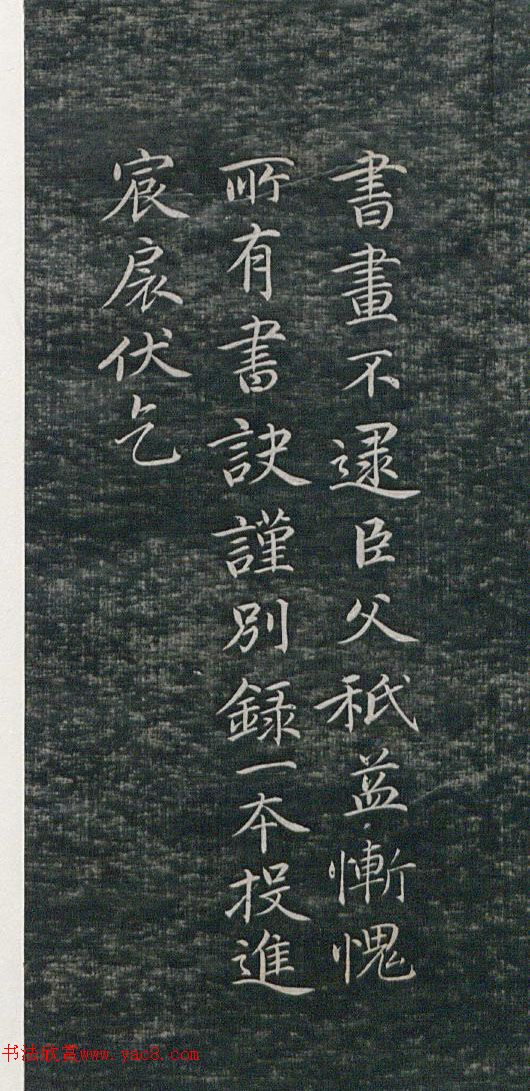 書畫不逮臣父秖益慚愧
所有書訣謹別錄一本投進
宸扆伏乞
书法欣赏www.yac8.com